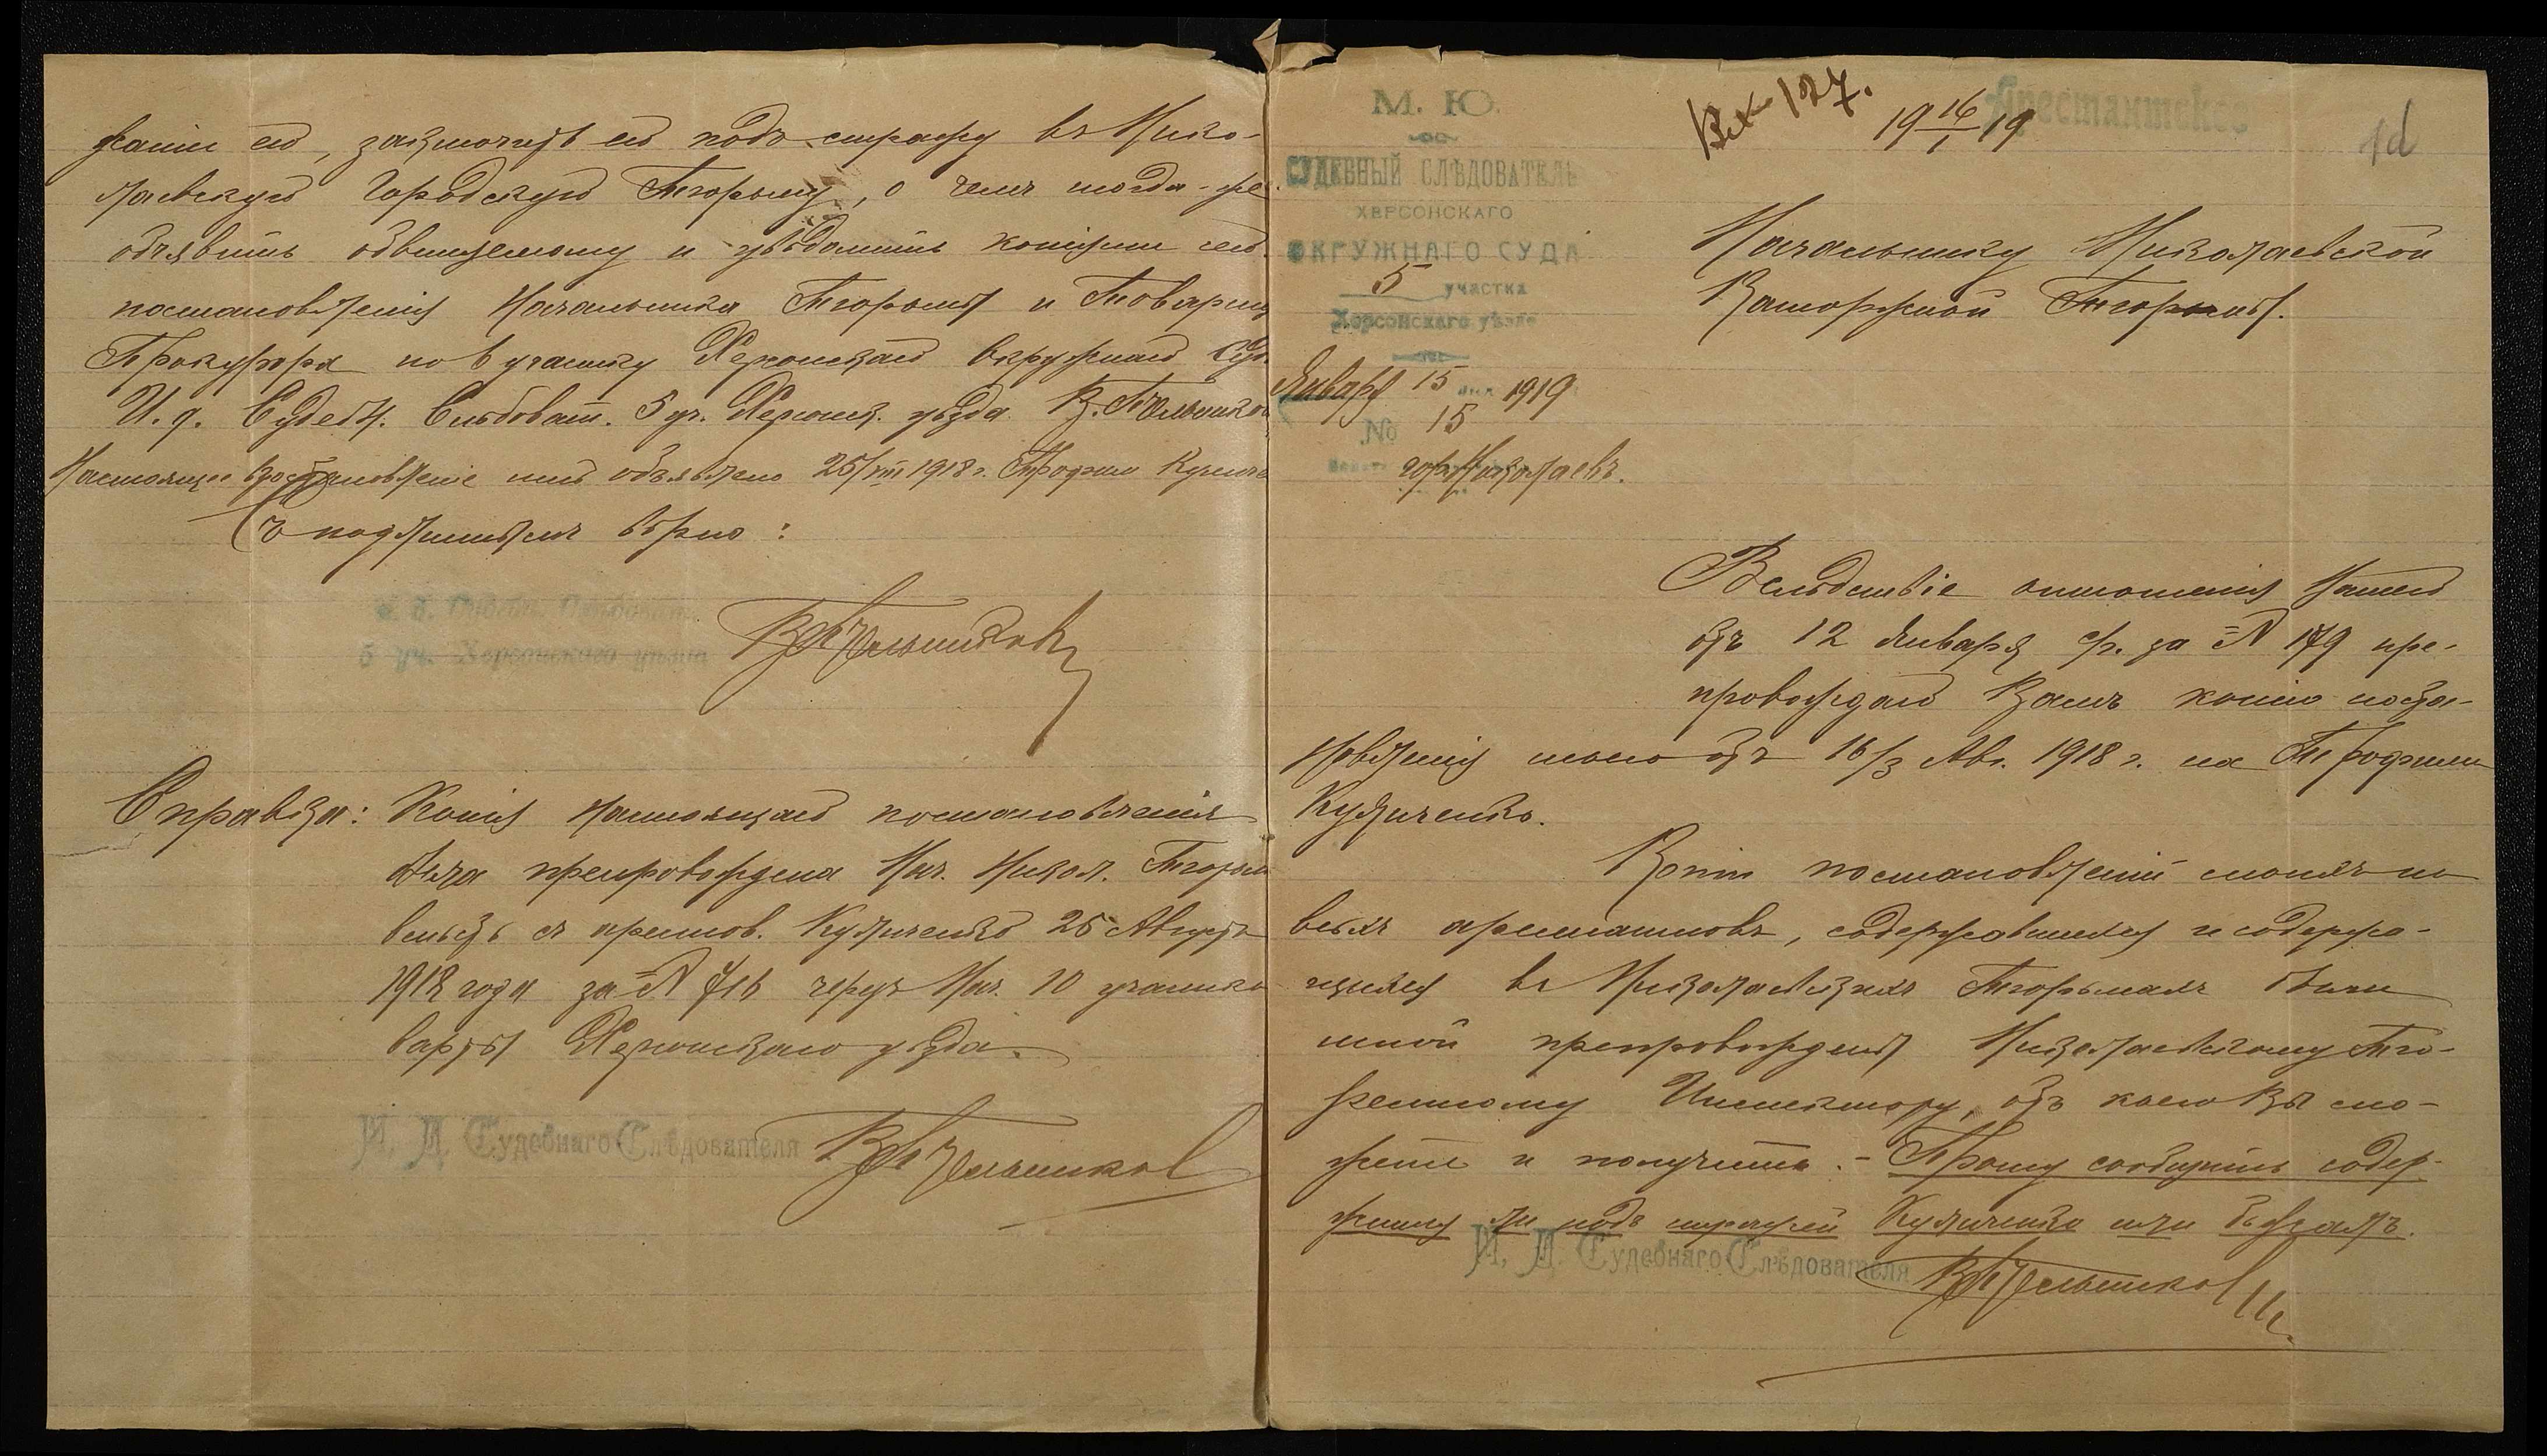 жаніи его, заключить его подъ стражу въ Нико-
лаевскую Городскую Тюрьму, о чемъ тогда-же
объявить обвиняемому и увѣдомить копіями сего
постановленія Начальника Тюрьмы и Товарища
Прокурора по 6 участку Херсонскаго Окружнаго Суда
И. д. Судебн. Слѣдоват. 5 уч. Херсонск. уѣзда В.
Настоящее постановленіе мнѣ объявлено 25/VIII 1918 г. Трофим
Съ подлиннымъ вѣрно:
5 уч. Херсонскаго уѣзда
Справка: Копія настоящаго постановленія
была препровождена Нач. Никол. Тюрьмы
вмѣстѣ съ препров. Куличенко 25 Августа
1918 года за № 716 черезъ Нач. 10 участка
варты Херсонскаго уѣзда.
И. Д. Судебнаго Слѣдователя
М. Ю.
СУДЕБНЫЙ СЛѢДОВАТЕЛЬ
ХЕРСОНСКАГО
ОКРУЖНАГО СУДА
5 участка
Херсонскаго уѣзда
Января 15 дня 1919
№ 15
гор. Николаевъ.
Вх 127.
19 16/1 19
Арестантское
Начальнику Николаевской
Каторжной Тюрьмы.
Вслѣдствіе отношенія Вашего
отъ 12 Января с/г. за № 179 пре-
провождаю Вамъ копію поста-
новленія моего отъ 16/3 Авг. 1918 г. на Трофима
Куличенко.
Копіи постановленій моихъ на
всѣхъ арестантовъ, содержавшихся и содержа-
щихся въ Николаевскихъ Тюрьмахъ были
мной препровождены Николаевскому Тю-
ремному Инспектору, отъ коего Вы мо-
жете и получить. - Прошу сообщить содер-
жится ли подъ стражей Куличенко или бѣжалъ.
И. Д. Судебнаго Слѣдователя